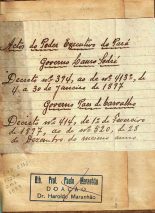 Actos do Poder Executivo do Pará
Governo Lauro Sodré
Decreto nº 394, ao de nº 413, de
4 a 30 de Janeiro de 1897
Governo Paes de Carvalho
Decreto nº 414, de 12 de Fevereiro
de 1897, ao de nº 520, de 28
de Dezembro do mesmo anno.
Bib. Prof. Paulo Maranhão
DOAÇÃO
Dr. Haroldo Maranhão